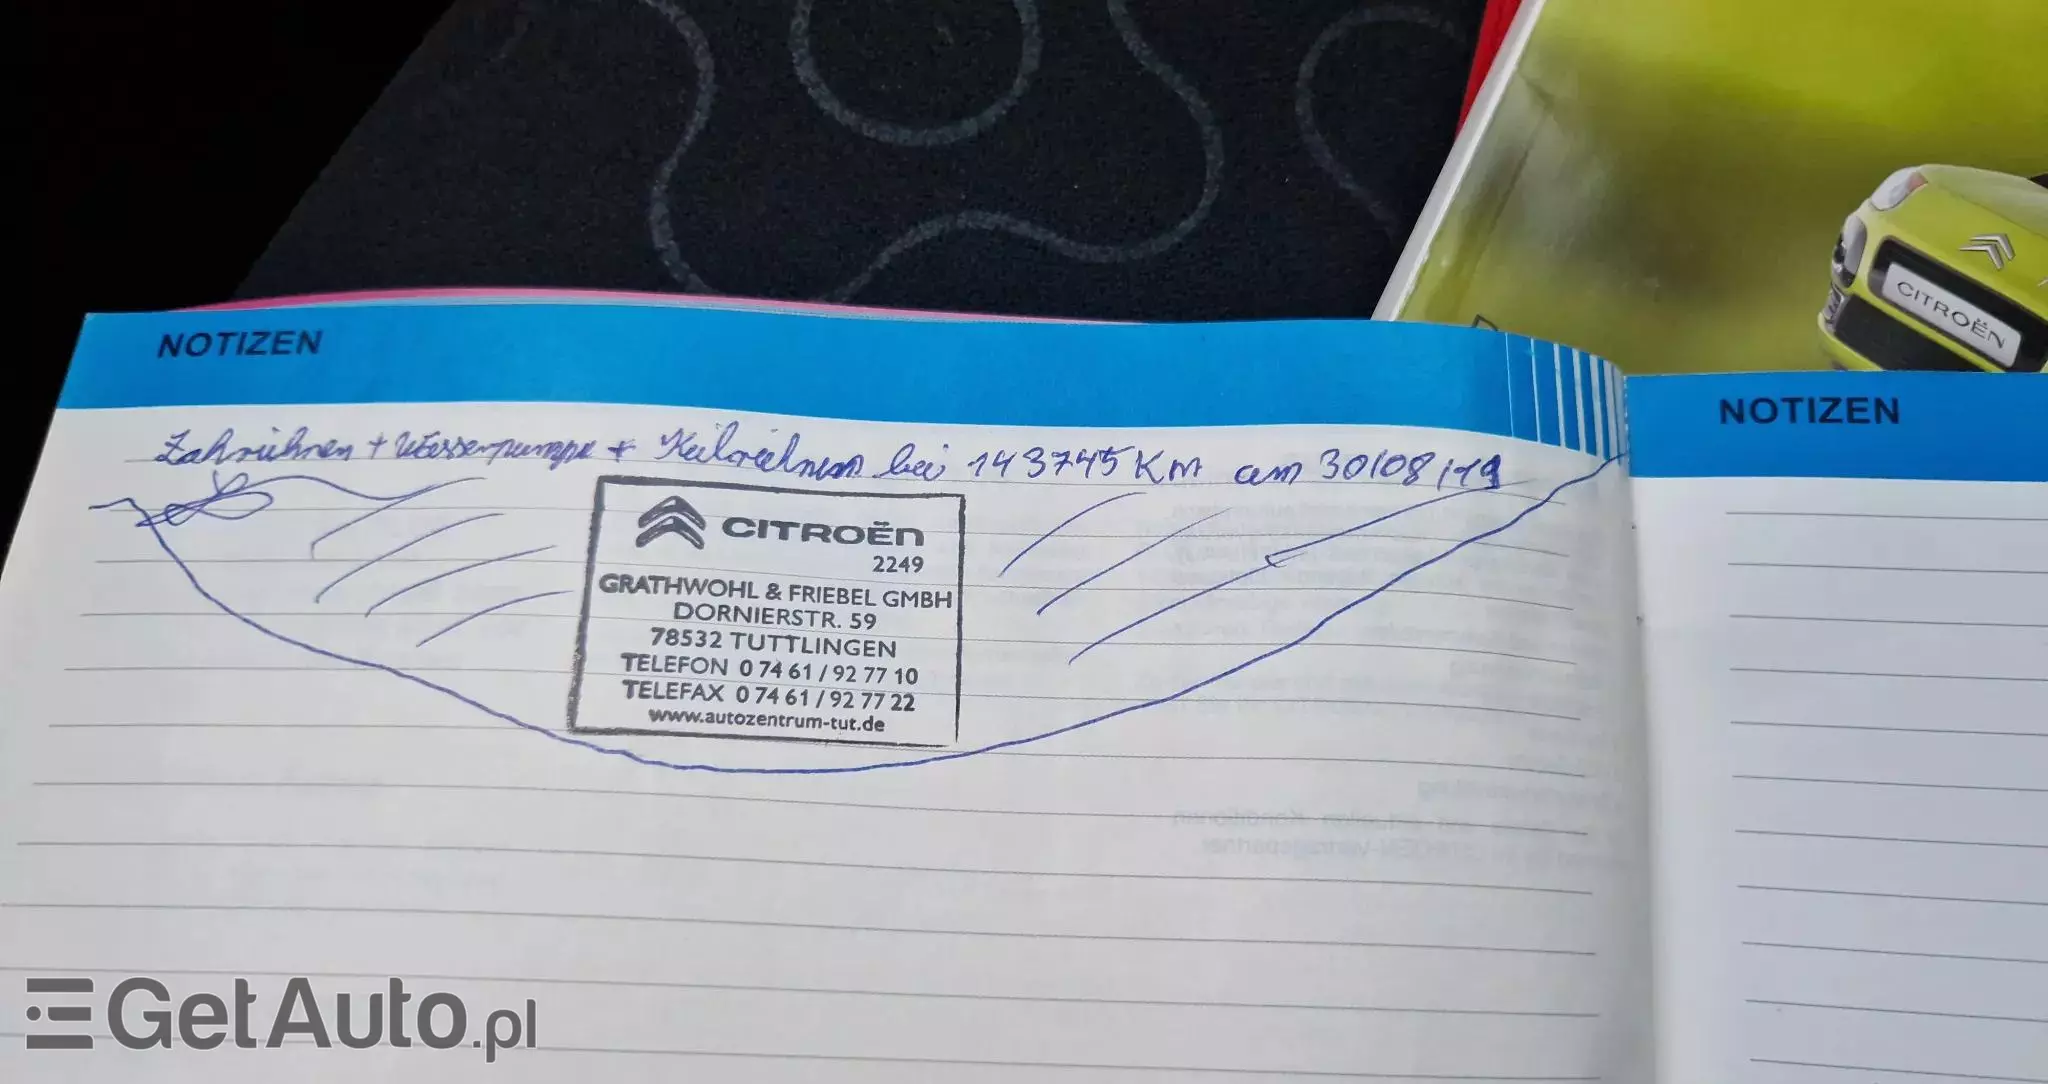 NOTIZEN
Zahnriemen + Wasserpumpe + Keilriemen bei 143745 Km am 30/08/19
CITROËN
2249
GRATHWOHL & FRIEBEL GMBH
DORNIERSTR. 59
78532 TUTTLINGEN
TELEFON 0 74 61 / 92 77 10
TELEFAX 0 74 61 / 92 77 22
www.autozentrum-tut.de
NOTIZEN
CITROËN
GetAuto.pl